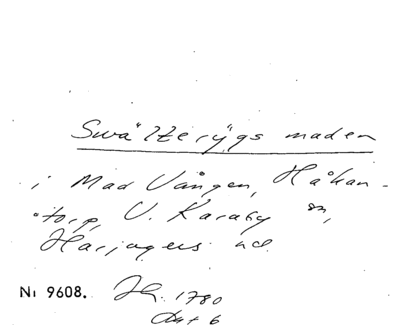 Swältzerÿgs maden
i Mad Vången, Håkan-
torp, V. Karaby sn,
Harjagers hd.
Ni 9608. 1780
akt 6